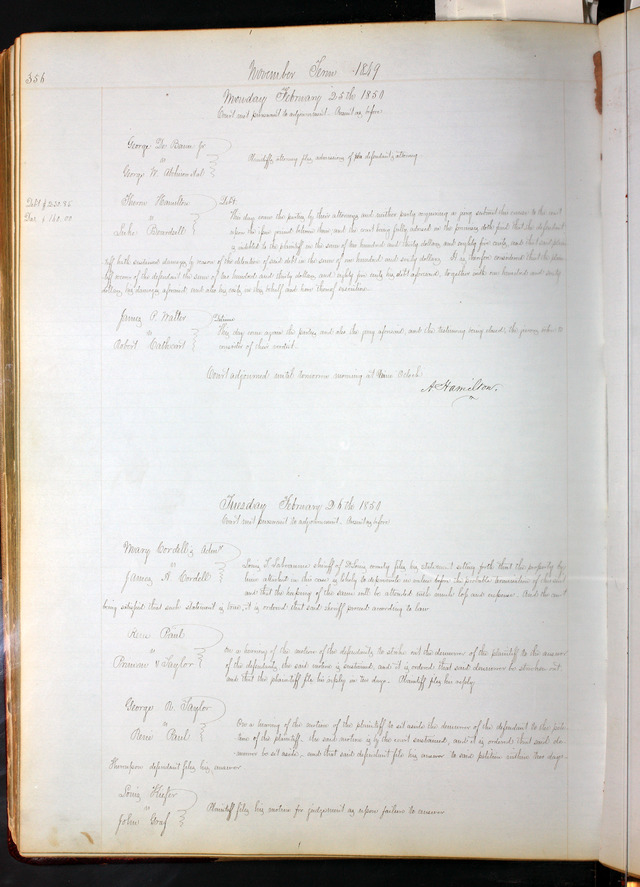 356
November Term 1849
Monday February 25th 1850
Court met pursuant to adjournment. Present as before
George De Baun Jr
vs
George W.
Plaintiffs attorney files admission of defendants attorney.
Debt $230.85
Dam. $160.00
Hamilton
vs
Luke Beardsell
Debt.
This day come the parties by their attorneys and neither party requiring a jury submit this cause to the court
upon the issue joined between them and the court being fully advised in the premises doth find that the defendant
is indebted to the plaintiff in the sum of two hundred and thirty dollars and eighty five cents, and that said plain
tiff hath sustained damages by reason of the detention of said debt in the sum of one hundred and sixty dollars. It is therefore considered that the plain
tiff recover of the defendant the sum of two hundred and thirty dollars and eighty five cents his debt aforesaid, together with one hundred and sixty
dollars his damages aforesaid and also his costs in this behalf and have thereof execution.
James P. Walter
vs
Robert Cathcart
This day come again the parties and also the jury aforesaid, and the testimony being closed, the jury retire to
consider of their verdict.
Court adjourned until tomorrow morning at Nine O'clock
A Hamilton.
Tuesday February 26th 1850
Court met pursuant to adjournment. Present as before
Mary Cordell's Admr
vs
James A. Cordell
Louis T. Labeaume sheriff of St Louis county files his statement setting forth that the property by
him attached in this cause is likely to depreciate in value before the probable termination of the suit
and that the keeping of the same will be attended with much loss and expense. And the court
being satisfied that such statement is true, it is ordered that said sheriff proceed according to law
Rene Paul
vs
& Taylor
On a hearing of the motion of the defendants to strike out the demurrer of the plaintiff to the answer
of the defendants the said motion is sustained, and it is ordered that said demurrer be stricken out,
and that the plaintiff file his reply in ten days. Plaintiff files his reply
George R. Taylor
vs
Rene Paul
On a hearing of the motion of the plaintiff to set aside the demurrer of the defendant to the peti-
tion of the plaintiff. the said motion is by the court sustained, and it is ordered that said de-
murrer be set aside, and that said defendant file his answer to said petition within two days.
Thereupon defendant files his answer
Louis Kiefer
vs
John Graf
Plaintiff files his motion for judgement as upon failure to answer